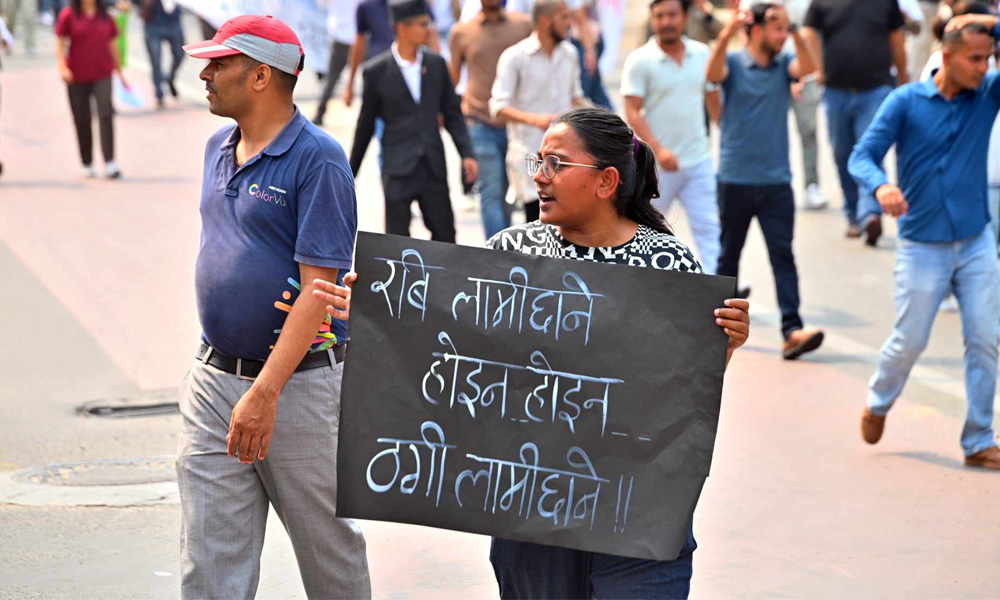 ColorVu
रबि लामीछाने
होइन..होइन__
ठगी लामीछाने !!